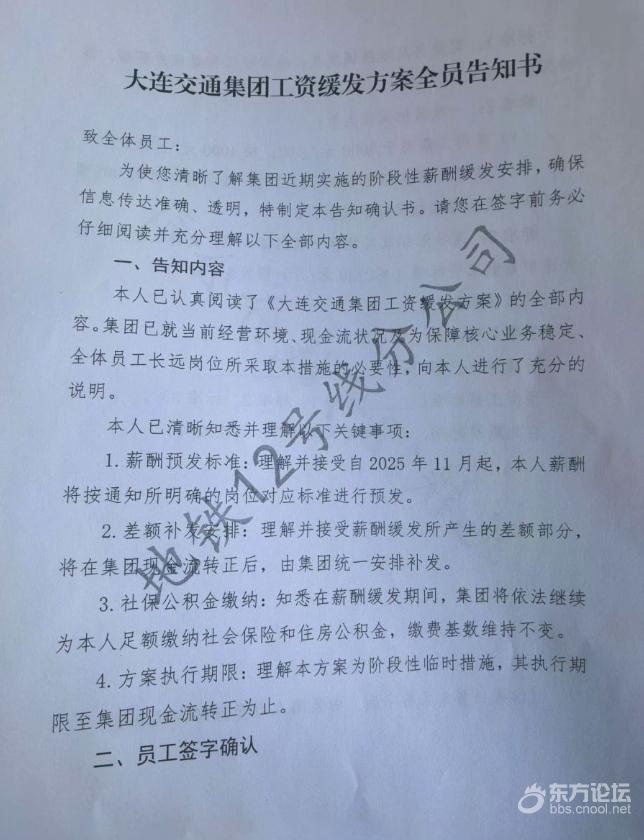 大连交通集团工资缓发方案全员告知书
致全体员工：
为使您清晰了解集团近期实施的阶段性薪酬缓发安排，确保
信息传达准确、透明，特制定本告知确认书。请您在签字前务必
仔细阅读并充分理解以下全部内容。
一、告知内容
本人已认真阅读了《大连交通集团工资缓发方案》的全部内
容。集团已就当前经营环境、现金流状况及为保障核心业务稳定、
全体员工长远岗位所采取本措施的必要性，向本人进行了充分的
说明。
本人已清晰知悉并理解以下关键事项：
1. 薪酬预发标准：理解并接受自 2025 年 11 月起，本人薪酬
将按通知所明确的岗位对应标准进行预发。
2. 差额补发安排：理解并接受薪酬缓发所产生的差额部分，
将在集团现金流转正后，由集团统一安排补发。
3. 社保公积金缴纳：知悉在薪酬缓发期间，集团将依法继续
为本人足额缴纳社会保险和住房公积金，缴费基数维持不变。
4. 方案执行期限：理解本方案为阶段性临时措施，其执行期
限至集团现金流转正为止。
二、员工签字确认
地铁12号线分公司
东方论坛
bbs.cnool.net